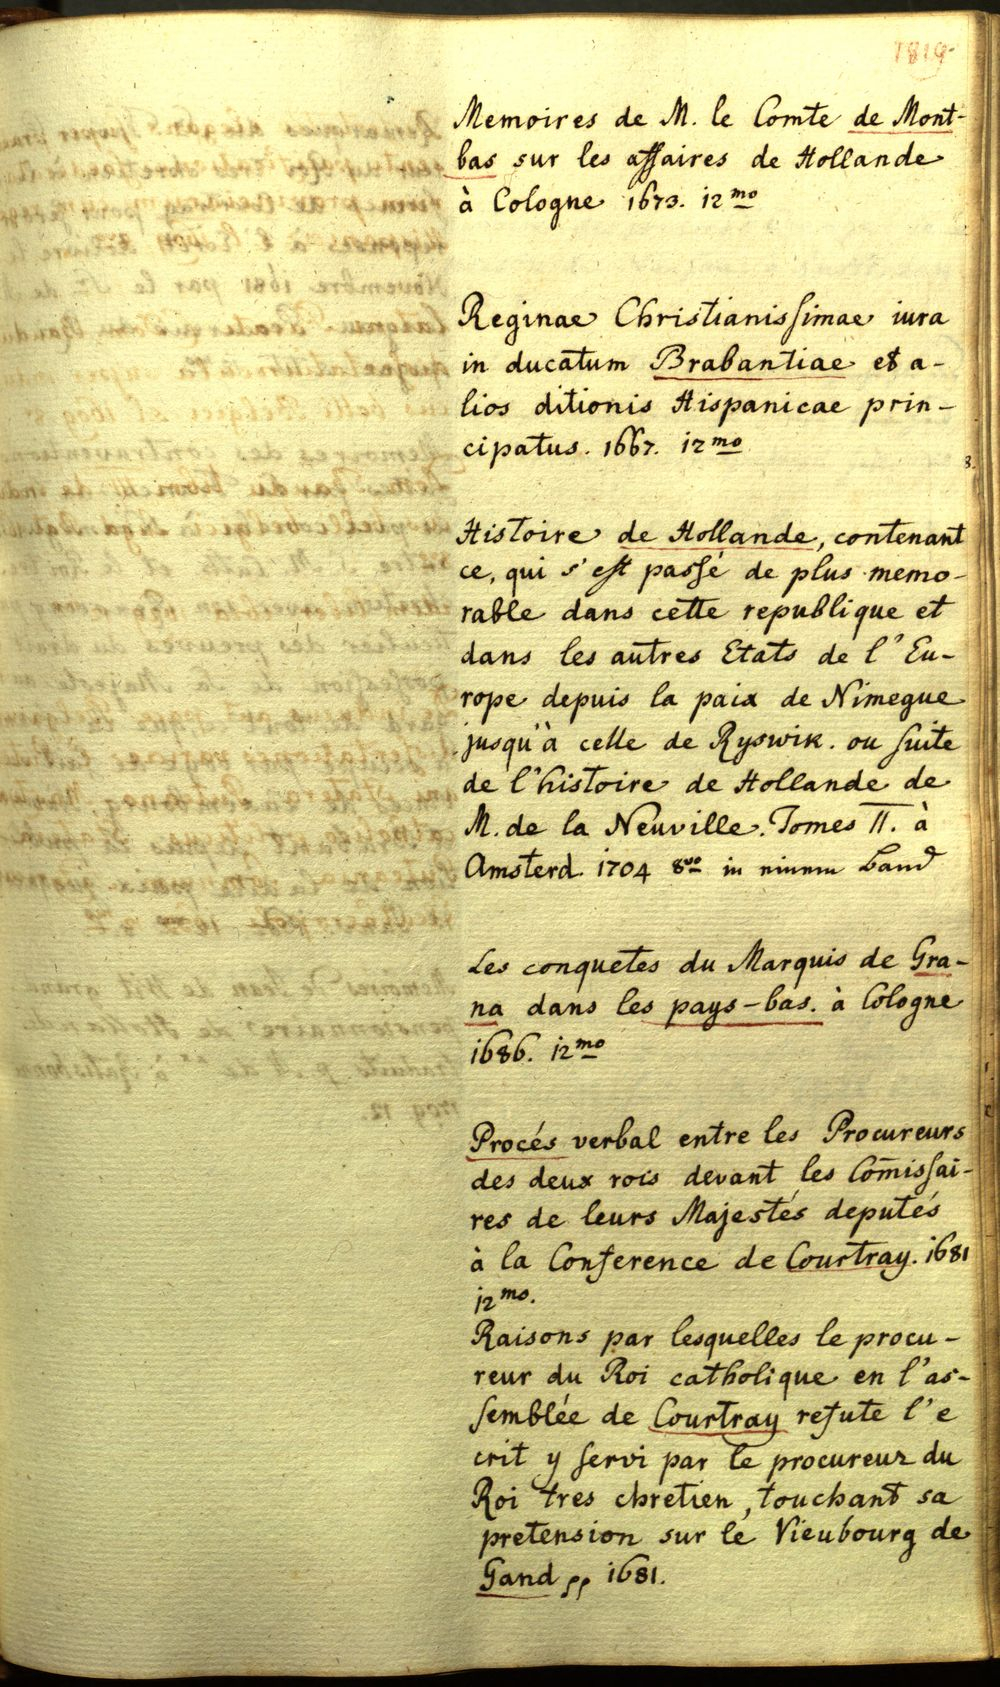 1819
Memoires de M. le Comte de Mont-
bas sur les affaires de Hollande
à Cologne 1673. 12mo
Reginae Christianissimae iura
in ducatum Brabantiae et a-
lios ditionis Hispanicae prin-
cipatus. 1667. 12mo
Histoire de Hollande, contenant
ce, qui s'est passé de plus memo-
rable dans cette republique et
dans les autres Etats de l'Eu-
rope depuis la paix de Nimegue
jusqu'à celle de Ryswik. ou suite
de l'histoire de Hollande de
M. de la Neuville. Tomes II. à
Amsterd. 1704 8vo in einem Band
Les conquetes du Marquis de Gra-
na dans les pays-bas. à Cologne
1686. 12mo
Procés verbal entre les Procureurs
des deux rois devant les Com̄issai-
res de leurs Majestés deputés
à la Conference de Courtray. 1681
12mo.
Raisons par lesquelles le procu-
reur du Roi catholique en l'as-
semblée de Courtray refute l'e
crit y servi par le procureur du
Roi tres chretien, touchant sa
pretension sur le Vieubourg de
Gand 1681.